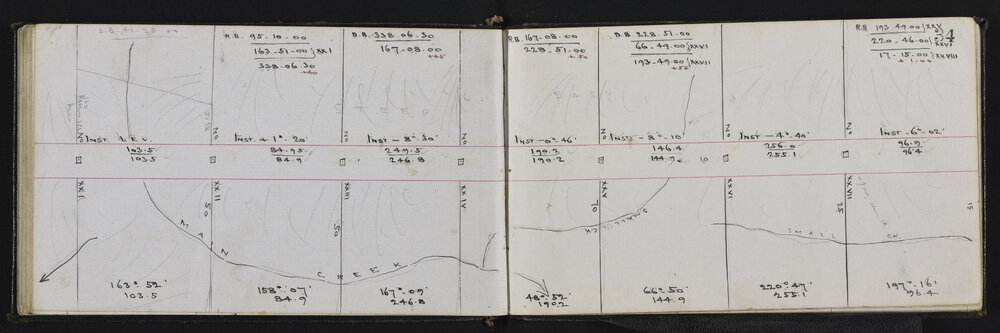 B.B. 41. 28. 00
R.B. 95-10-00
163-51-00 } XXI
338-06.30
+40
B.B. 338.06.30
167-08.00
+45
R.B. 167-08.00
228.51.00
+50
B.B. 228.51-00
66-49.00 } XXVI
193-49.00 } XXVII
+55
R.B 193.49.00 } XXV
220-46.00 } XXVI
17-15.00 } XXVIII
+1.00
34
STEEP
EASY
No
No
No
No
No
No
No
INST. LEV.
INST + 1°. 20'
INST - 8°. 30'
INST - 0°- 46'
INST - 8°- 10'
INST - 4°- 40'
INST. - 6°- 02'
103.5
103.5
84.95
84.9
249.5
246.8
190.2
190.2
146.4
144.9
10
256.0
255.1
96.9
96.4
XXI
XXII
50
XXIII
50
XXIV
XXV
70
XXVI
XXVII
25
15
MAIN CREEK
SMALL CK
SMALL CK
163° 52'
103.5
158°. 07'
84.9
167°. 09'
246.8
48°. 52'
190.2
66° 50'
144.9
220° 47'
255.1
197°. 16'
96.4